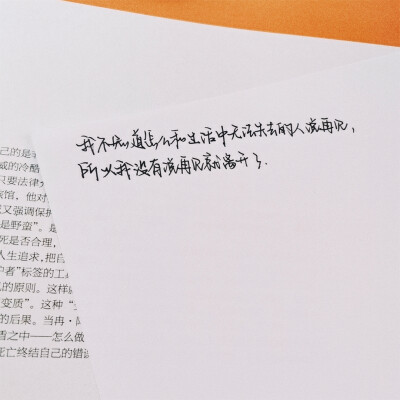 我不知道怎么和生活中无法失去的人说再见，
所以我没有说再见就离开了.
己的是非
威的冷酷
只要法律
宾馆，他对
又强调保护
是野蛮”。是
死是否合理，
人生追求，把自
护者”标签的工
的原则。这样
变质”。这种“
的后果。当冉·
盾之中——怎么做
死亡终结自己的错误